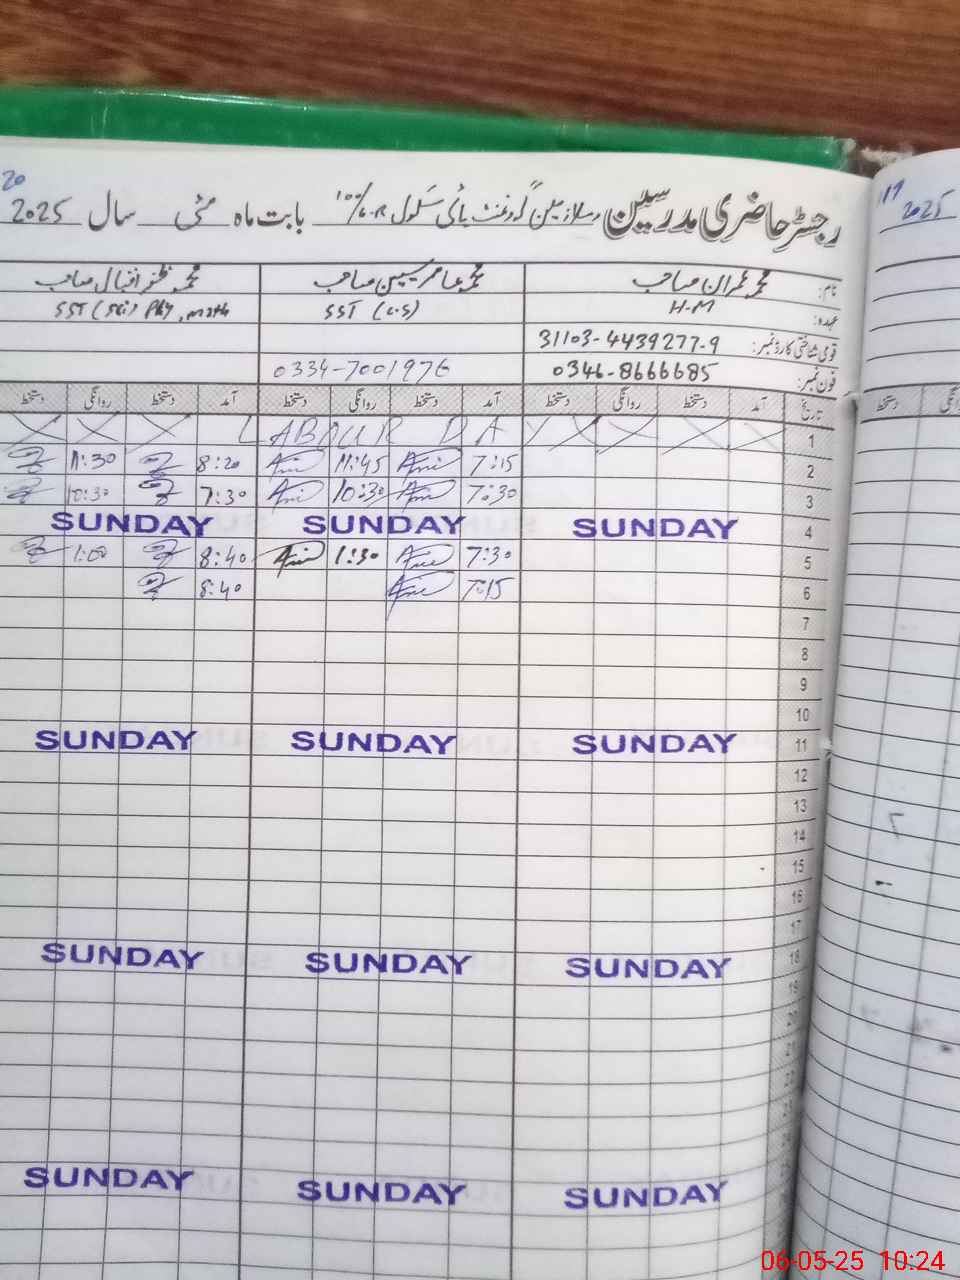 رجسٹر حاضری مدرسین ملازمین گورنمنٹ ہائی سکول 100/6-R بابت ماہ مئی سال 2025
20
19 2025
نام: محمد عمران صاحب محمد عامر یسین صاحب محمد ظفر اقبال صاحب
عہدہ: H.M SST (C.S) SST (Sci) Phy, math
قومی شناختی کارڈ نمبر: 31103-4439277-9
فون نمبر: 0346-8666685 0334-7001976
تاریخ آمد دستخط روانگی دستخط آمد دستخط روانگی دستخط آمد دستخط روانگی دستخط
دستخط
1 LABOUR DAY
2 7:15 11:45 8:20 11:30
3 7:30 10:30 7:30 10:30
4 SUNDAY SUNDAY SUNDAY
5 7:30 1:30 8:40 1:00
6 7:15 8:40
7
8
9
10
11 SUNDAY SUNDAY SUNDAY
12
13
14
15
16
17
18 SUNDAY SUNDAY SUNDAY
19
20
21
22
23
24
25 SUNDAY SUNDAY SUNDAY
06-05-25 10:24